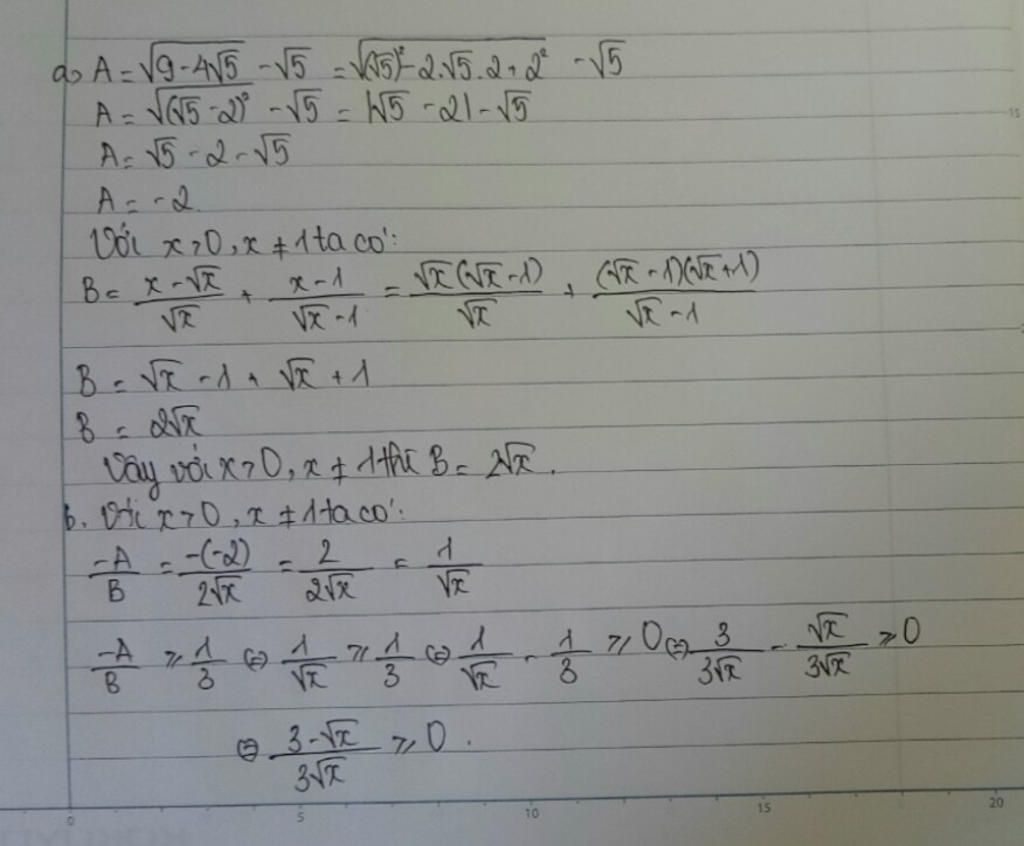 a) A = √(9 - 4√5) - √5 = √((√5)² - 2.√5.2 + 2²) - √5
A = √((√5 - 2)²) - √5 = |√5 - 2| - √5
A = √5 - 2 - √5
A = -2.
Với x > 0, x ≠ 1 ta có:
B = (x - √x)/√x + (x - 1)/(√x - 1) = √x(√x - 1)/√x + (√x - 1)(√x + 1)/(√x - 1)
B = √x - 1 + √x + 1
B = 2√x
Vậy với x > 0, x ≠ 1 thì B = 2√x.
b. Với x > 0, x ≠ 1 ta có:
-A/B = -(-2)/(2√x) = 2/(2√x) = 1/√x
-A/B ⩾ 1/3 ⇔ 1/√x ⩾ 1/3 ⇔ 1/√x - 1/3 ⩾ 0 ⇔ 3/(3√x) - √x/(3√x) ⩾ 0
⇔ (3 - √x)/(3√x) ⩾ 0.
0 5 10 15 20